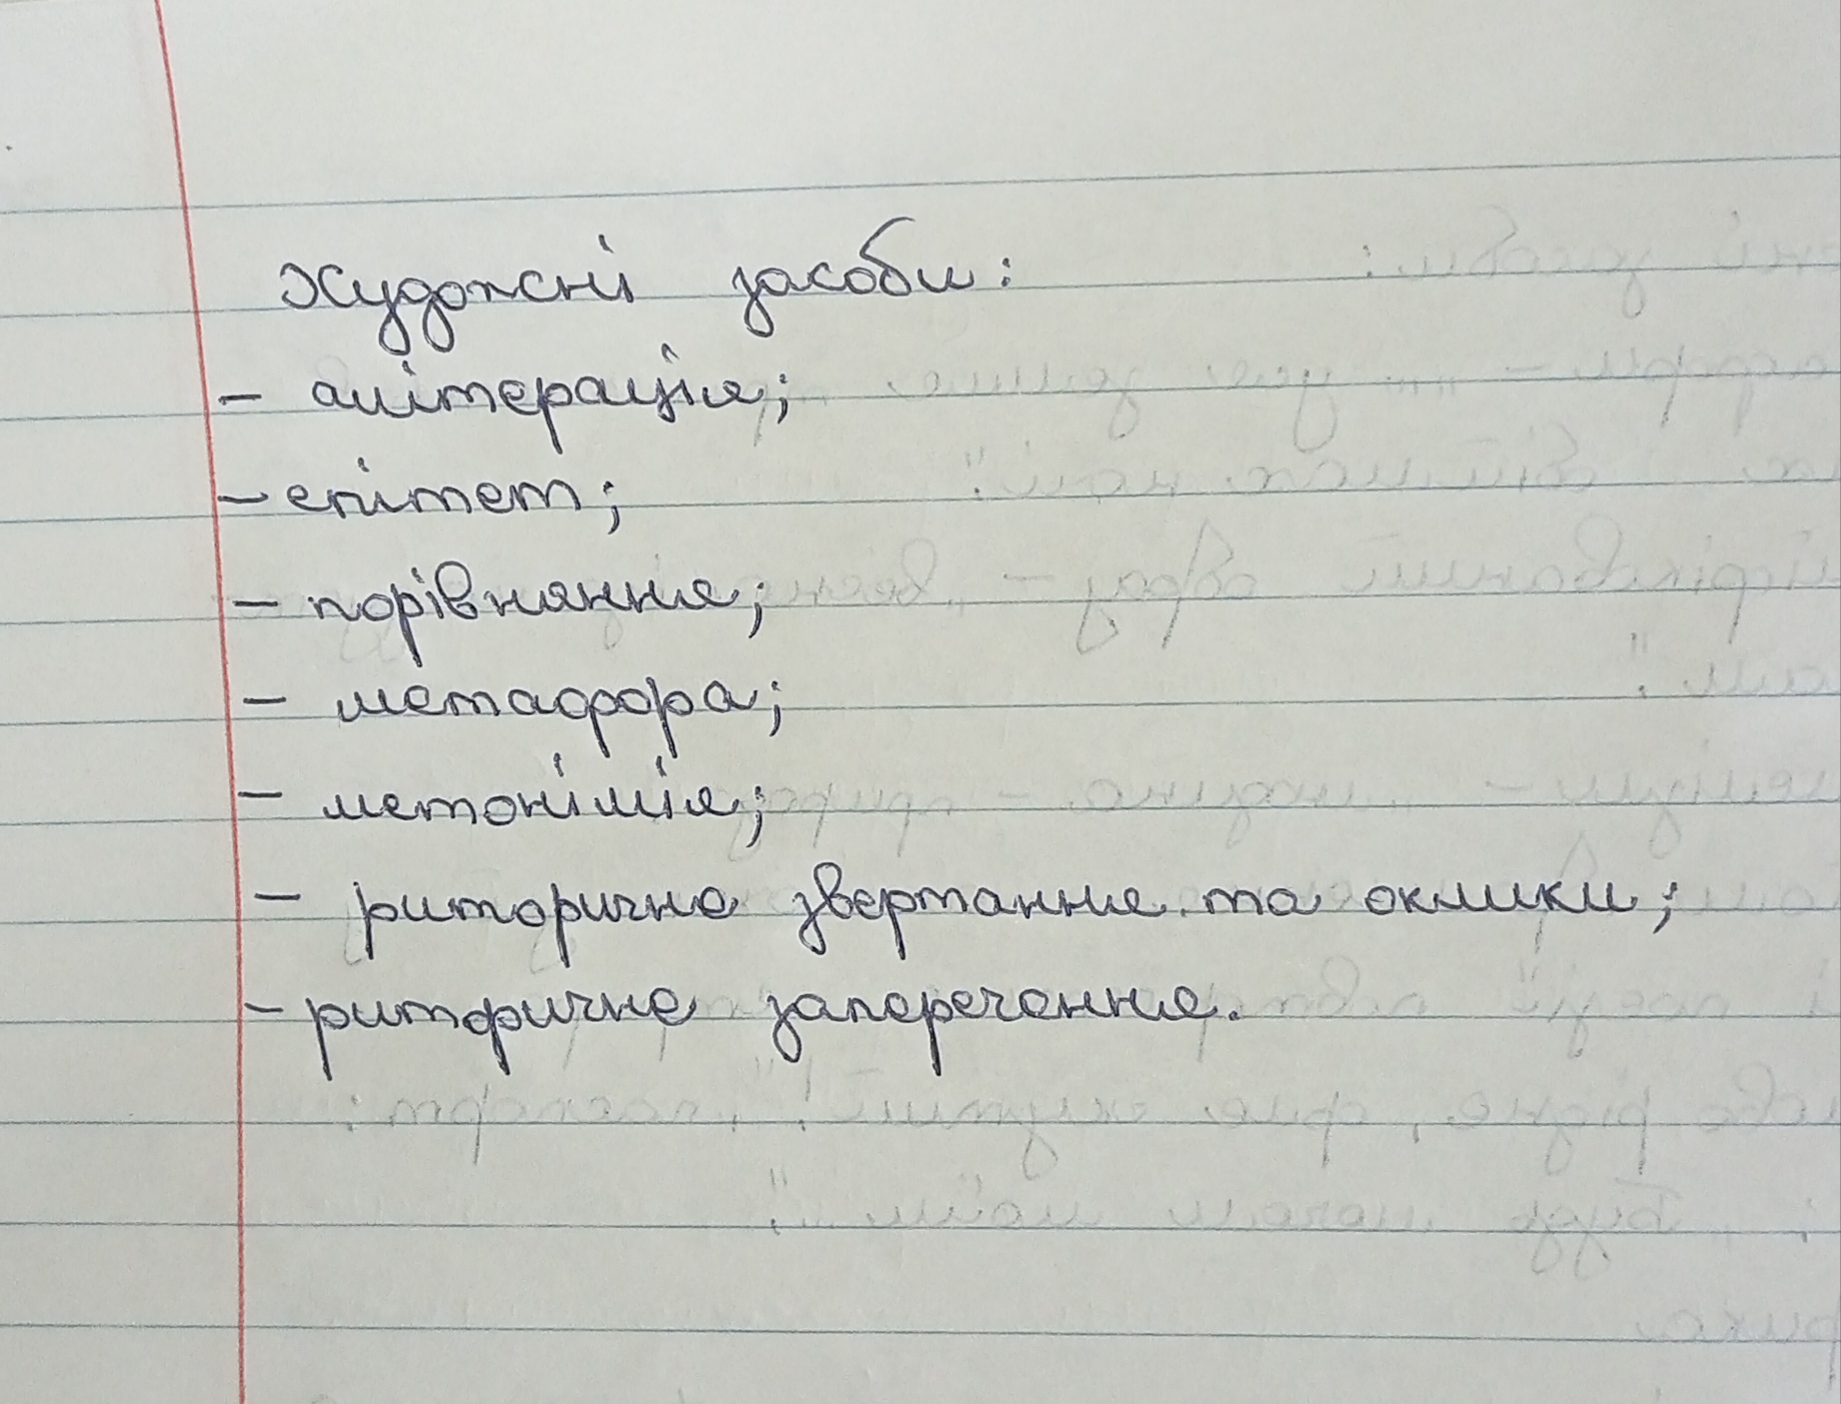 Художні засоби:
- алітерація;
- епітет;
- порівняння;
- метафора;
- метонімія;
- риторичне звертання та оклики;
- риторичне заперечення.